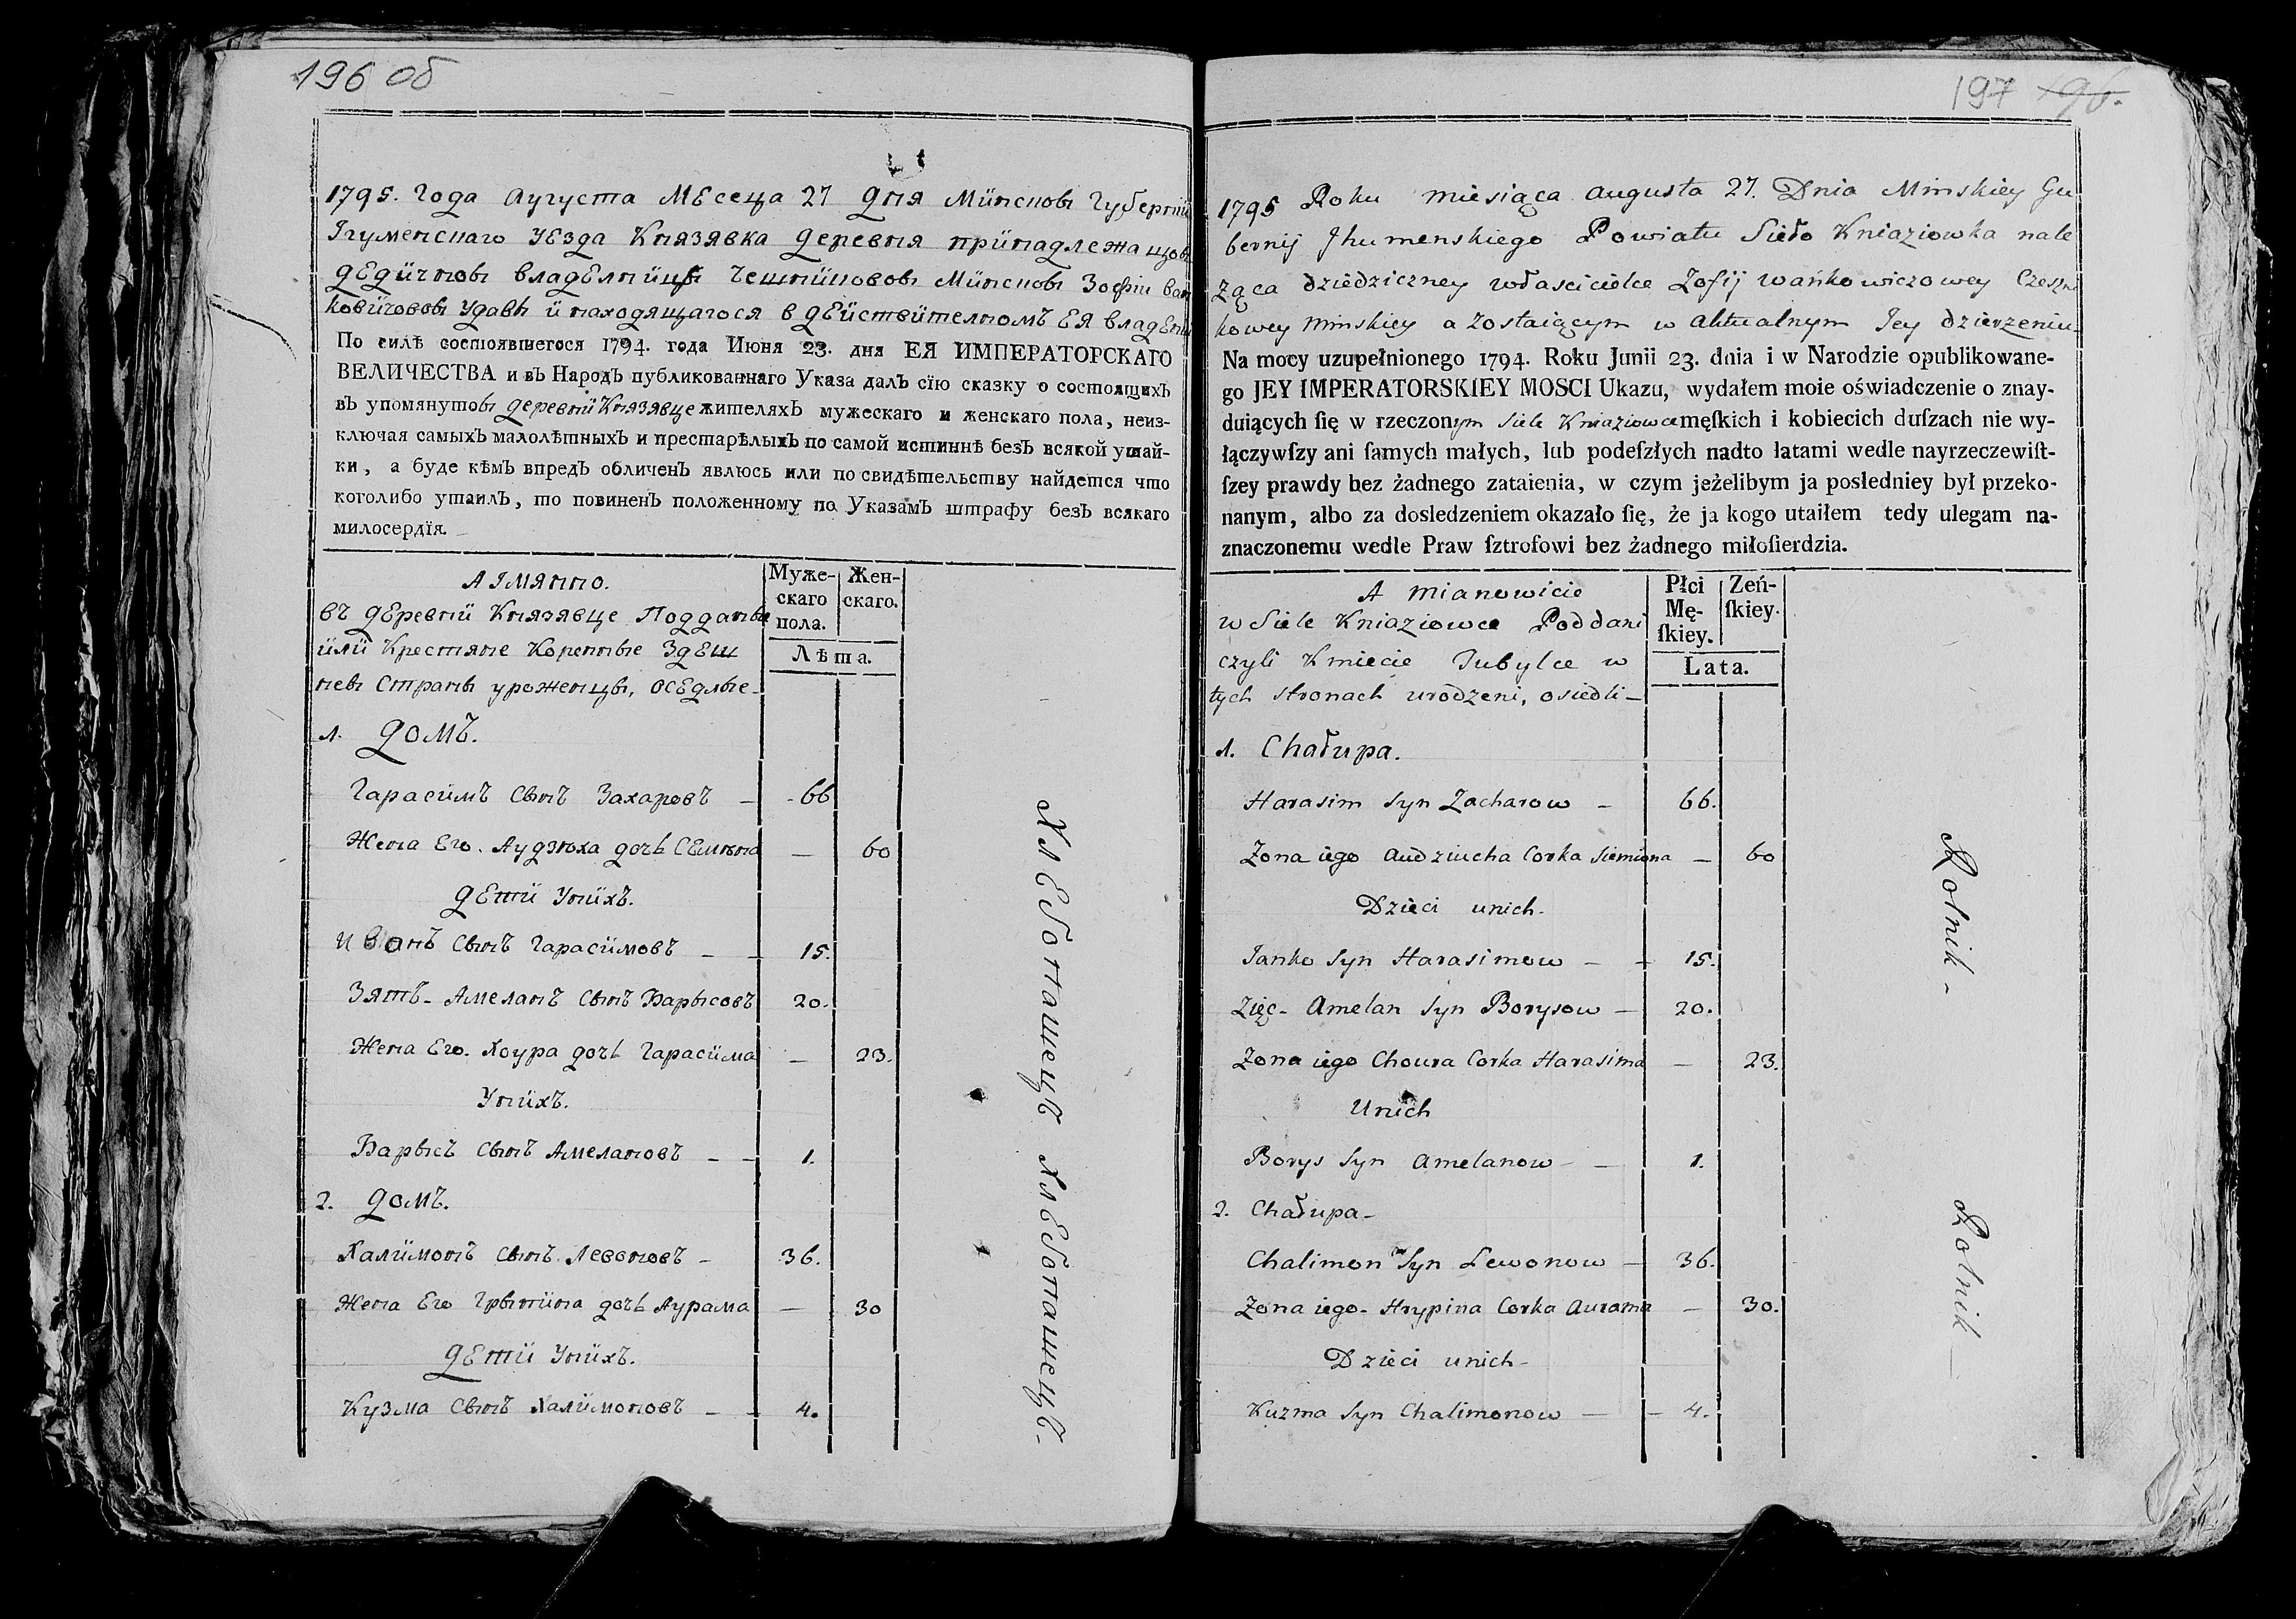 196 об
1795. Года Аугуста МЕсеца 27 Дня Минской Губернии
Ігуменскаго УЕзда Князявка деревня принадлежащой
ДЕдичной владЕлници Чешниковой Минской Зофии Ван
ковичовой Удавы и находящагося в дЕйствителномъ ЕЯ владЕни
По силѣ состоявшегося 1794. года Июня 23. дня ЕЯ ИМПЕРАТОРСКАГО
ВЕЛИЧЕСТВА и въ Народъ публикованнаго Указа далъ сїю сказку о состоящихъ
въ упомянутой деревни Князявце жителяхъ мужескаго и женскаго пола, неиз-
ключая самыхъ малолѣтныхъ и престарѣлыхъ по самой истиннѣ безъ всякой утай-
ки, а буде кѣмъ впредъ обличенъ явлюсь или по свидѣтельству найдется что
коголибо утаилъ, то повиненъ положенному по Указамъ штрафу безъ всякаго
милосердїя.
А Імянно.
въ дЕревни Князявце Подданые
или Крестяне Коренные ЗдЕш
ней Страны уроженцы, осЕдлые
Муже-
скаго
пола.
Жен-
скаго.
Лѣта.
1. Домъ.
Гарасимъ Сынъ Захаровъ – 66
Жена Его. Аудзюха дочь СЕмиона – 60
ДЕти Унихъ.
Иванъ Сынъ Гарасимовъ – – 15.
Зять - Амеланъ Сынъ Барысовъ 20.
Жена Его. Хоура дочь Гарасима – 23.
Унихъ.
Барысъ Сынъ Амелановъ – – 1.
2. Домъ.
Халимонъ Сынъ Левоновъ – 36.
Жена Его Грыпина дочь Аурама – 30
ДЕти Унихъ.
Кузма Сынъ Халимоновъ – – 4.
ХлЕбопашецъ
ХлЕбопашецъ.
197 196.
1795 Roku miesiąca Augusta 27. Dnia Minskiey Gu
bernij Jhumenskiego Powiatu Sieło Kniaziowka nale
ząca dziedziczney własciciełce Zofij Wańkowiczowey Czeszni
kowey Minskiey a zostaiącym w aktualnym Jey dzierzeniu
Na mocy uzupełnionego 1794. Roku Junii 23. dnia i w Narodzie opublikowane-
go JEY IMPERATORSKIEY MOSCI Ukazu, wydałem moie oświadczenie o znay-
duiących ſię w rzeczonym Siele Kniaziowce męſkich i kobiecich duſzach nie wy-
łączywſzy ani ſamych małych, lub podeſzłych nadto latami wedle nayrzeczewiſt-
ſzey prawdy bez żadnego zataienia, w czym jeżelibym ja posłedniey był przeko-
nanym, albo za dosledzeniem okazało ſię, że ja kogo utaiłem tedy ulegam na-
znaczonemu wedle Praw ſztrofowi bez żadnego miłoſierdzia.
A mianowicie
w Siele Kniaziowce Poddani
czyli Kmiecie Tubylce w
tych stronach urodzeni, osiedli –
Płci
Mę-
ſkiey.
Zeń-
ſkiey.
Lata.
1. Chałupa.
Harasim Syn Zacharow – 66.
Zona iego Audziucha Corka Siemiona – 60
Dzieci unich.
Janko Syn Harasimow – – 15.
Zięc - Amelan Syn Borysow – 20.
Zona iego Choura Corka Harasima – 23.
Unich
Borys Syn Amelanow – – 1.
2. Chałupa –
Chalimon Syn Lewonow – 36.
Zona iego - Hrypina Corka Aurama – 30.
Dzieci unich –
Kuzma Syn Chalimonow – – 4.
Rolnik –
Rolnik –